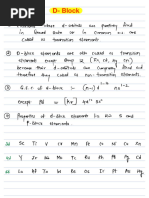 D-Block
Elements where d-orbitals are partially filled
in Ground State or in common o.s are
called as transition elements.
② d-Block elements are also called as transition
elements except Group 12 (Zn, Cd, Hg, Cn)
because their d-orbitals are completely filled and
are not called as transition elements.
③ of d-Block :- (n-1)d ns
except Pd = [Kr] 4d¹⁰ 5s⁰
④ Properties of d-Block is in b/w s and
p-Block elements
Sc Ti V Cr Mn Fe Co Ni Cu Zn
Y Zr Nb Mo Tc Ru Rh Pd Ag Cd
La Hf Ta W Re Os Ir Pt Au Hg